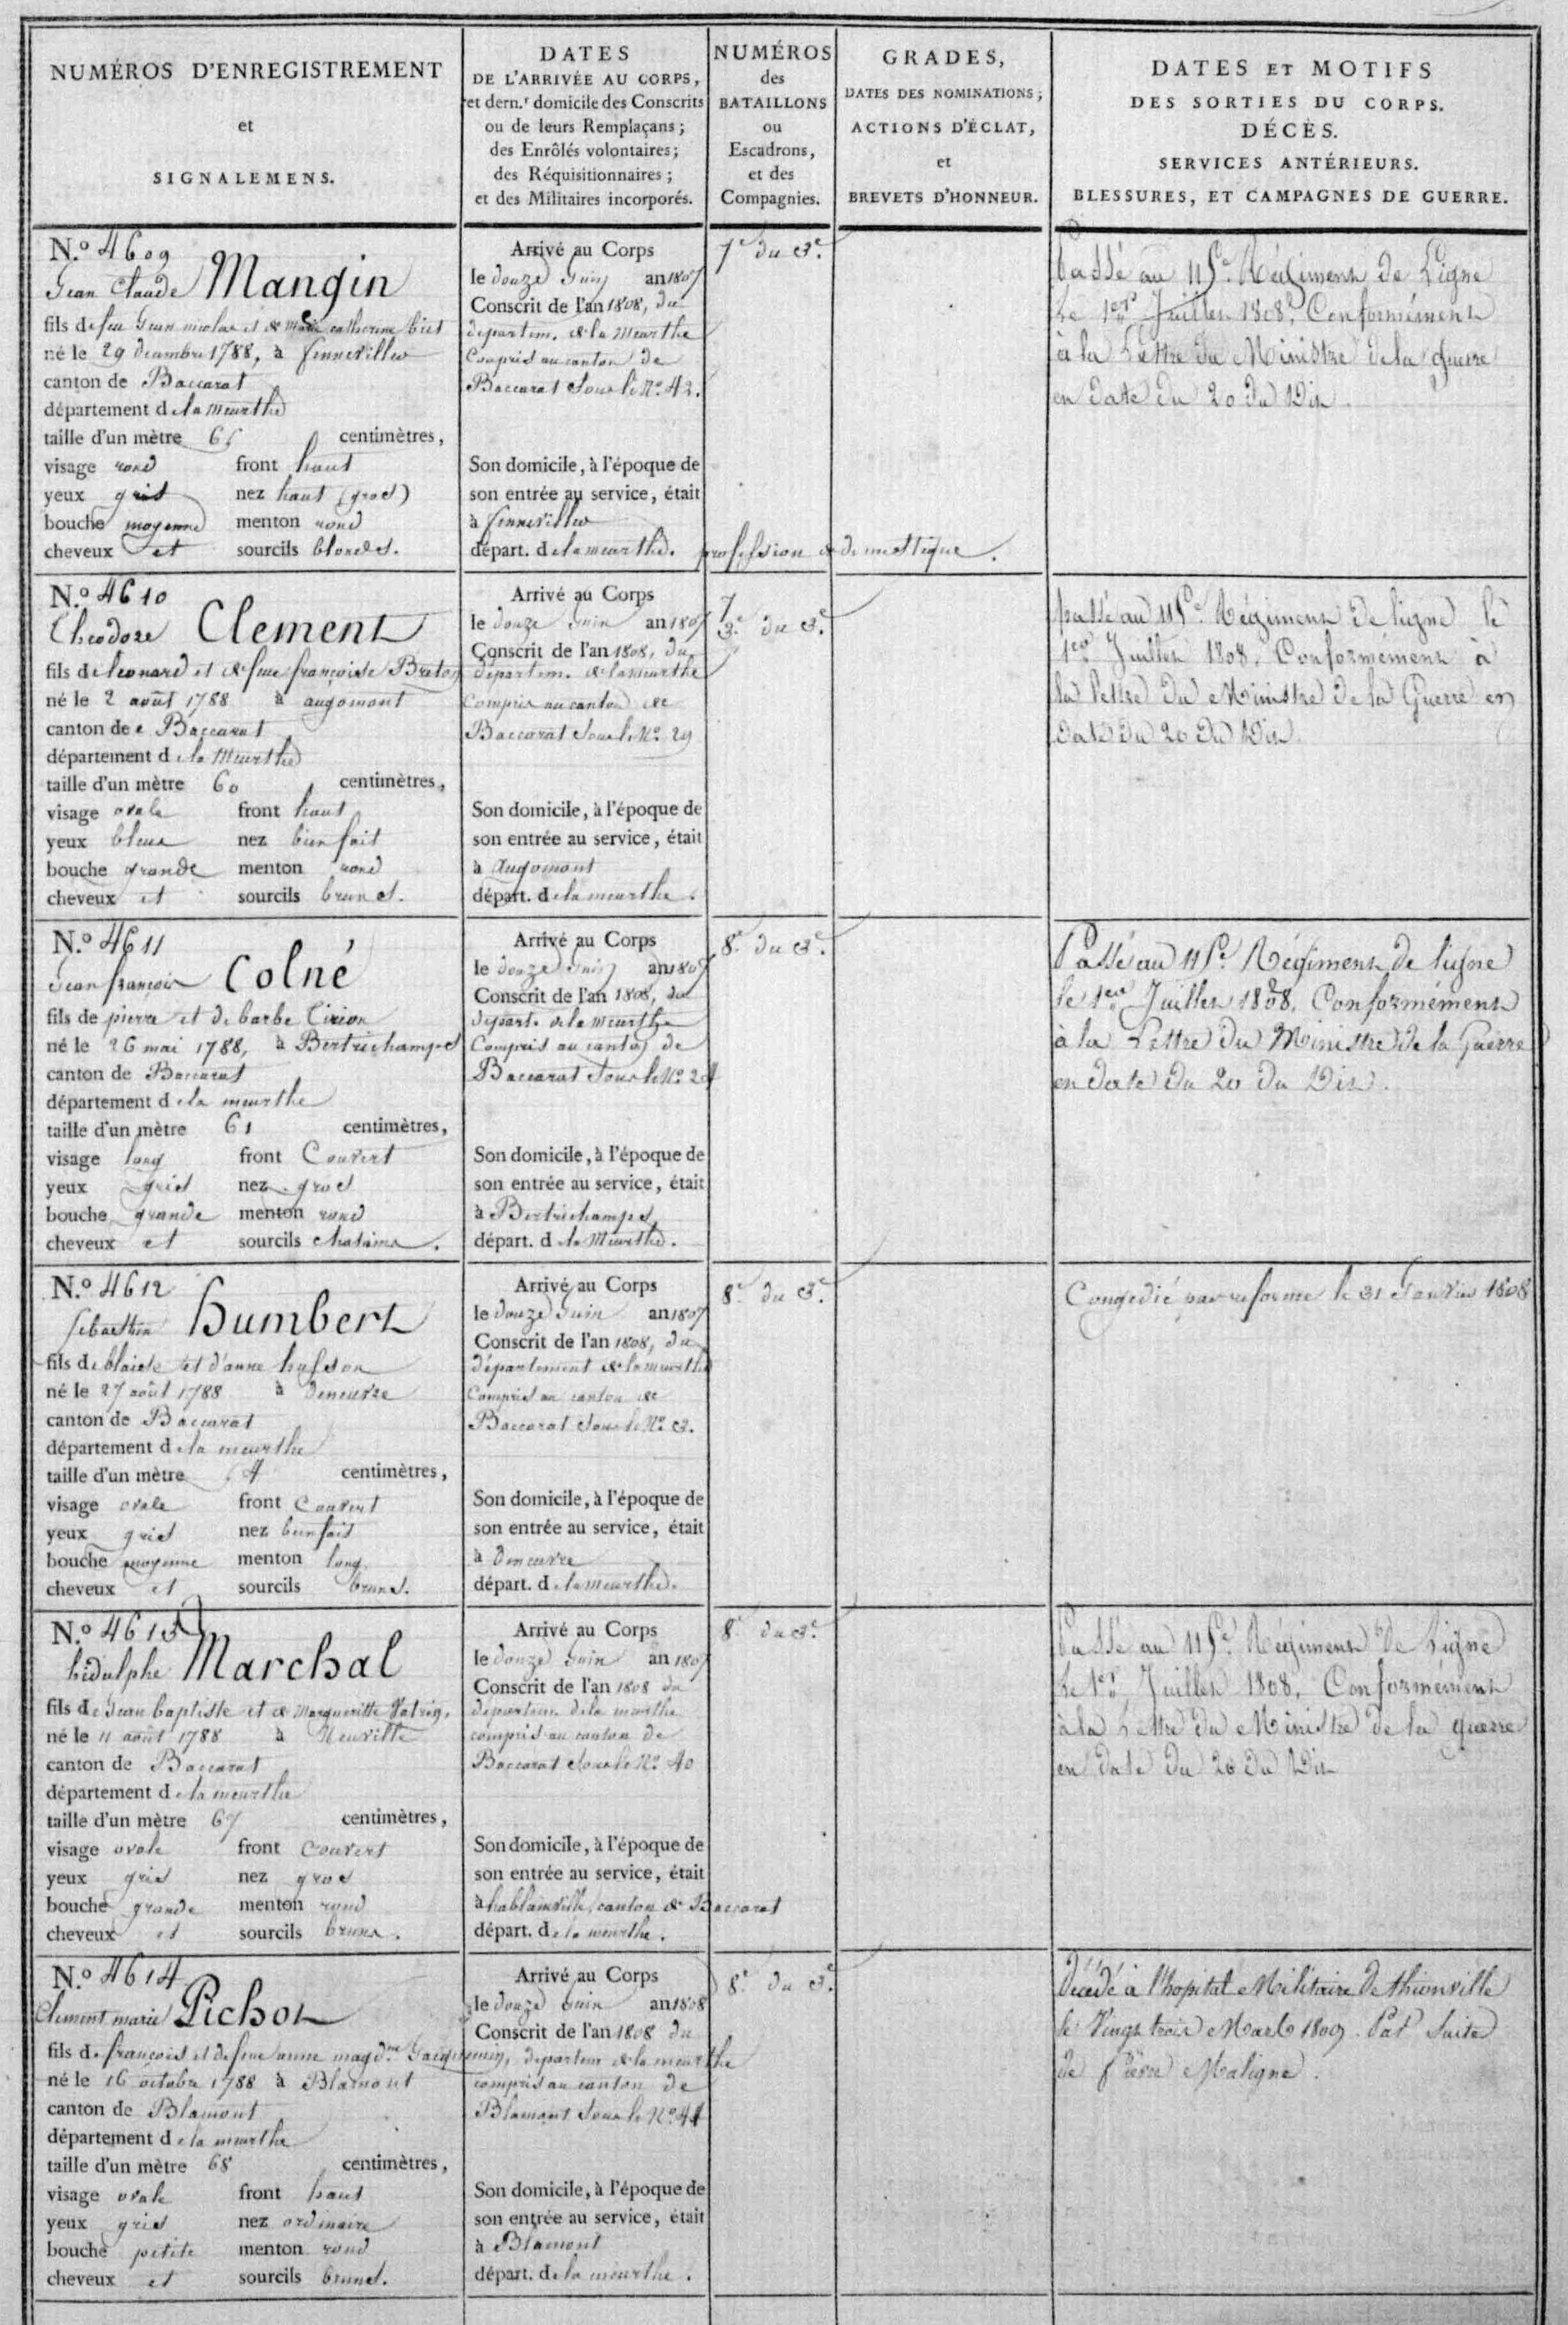 NUMÉROS D'ENREGISTREMENT
et
SIGNALEMENS.
DATES
DE L'ARRIVÉE AU CORPS,
et dern.r domicile des Conscrits
ou de leurs Remplaçans;
des Enrôlés volontaires;
des Réquisitionnaires;
et des Militaires incorporés.
NUMÉROS
des
BATAILLONS
ou
Escadrons,
et des
Compagnies.
GRADES,
DATES DES NOMINATIONS;
ACTIONS D'ÉCLAT,
et
BREVETS D'HONNEUR.
DATES ET MOTIFS
DES SORTIES DU CORPS.
DÉCÈS.
SERVICES ANTÉRIEURS.
BLESSURES, ET CAMPAGNES DE GUERRE.
N.o 4609
Jean Claude Mangin
fils de feu Jean nicolas et de Marie catherine
né le 29 decembre 1788, à fenneviller
canton de Baccarat
département de la Meurthe
taille d'un mètre centimètres,
visage rond front haut
yeux gris nez haut (gros)
bouche moyenne menton rond
cheveux et sourcils blonds.
Arrivé au Corps
le douze Juin an 1807
Conscrit de l'an 1808, du
departem. de la Meurthe
Compris au canton de
Baccarat sous le No. 43.
Son domicile, à l'époque de
son entrée au service, était
à fenneviller
départ. de la meurthe. profession de domestique.
7e du 3e.
Passé au 115e Régiment de Ligne
le 1er Juillet 1808, Conformément
à la Lettre du Ministre de la guerre
en date du 20 du Dit.
N.o 4610
Theodore Clement
fils de leonard et de feue françoise Breton
né le 2 août 1788 à augomont
canton de Baccarat
département de la Meurthe
taille d'un mètre 60 centimètres,
visage ovale front haut
yeux bleus nez bien fait
bouche grande menton rond
cheveux et sourcils bruns.
Arrivé au Corps
le douze Juin an 1807
Conscrit de l'an 1808, du
departem. de la meurthe
Compris au canton de
Baccarat sous le No. 29
Son domicile, à l'époque de
son entrée au service, était
à Augomont
départ. de la meurthe.
7
3e. du 3e.
passé au 115e. Régiment de ligne le
1er Juillet 1808. Conformément à
la lettre du Ministre de la Guerre en
Date du 20 du Dit.
N.o 4611
Jean françois Colné
fils de pierre et de barbe Cirion
né le 26 mai 1788, à Bertrichamps
canton de Baccarat
département de la meurthe
taille d'un mètre 61 centimètres,
visage long front Couvert
yeux gris nez gros
bouche grande menton rond
cheveux et sourcils chatains.
Arrivé au Corps
le douze Juin an 1807
Conscrit de l'an 1808, du
départ. de la meurthe
Compris au canton de
Baccarat sous le No. 24
Son domicile, à l'époque de
son entrée au service, était
à Bertrichamps
départ. de la Meurthe.
8e. du 3e.
Passé au 115e. Régiment de ligne
le 1er Juillet 1808. Conformément
à la Lettre du Ministre de la Guerre
en date du 20 du Dit.
N.o 4612
sebastien Humbert
fils de blaise et d'anne husson
né le 27 août 1788 à deneuvre
canton de Baccarat
département de la meurthe
taille d'un mètre centimètres,
visage ovale front Couvert
yeux gris nez bien fait
bouche moyenne menton long
cheveux et sourcils bruns.
Arrivé au Corps
le douze Juin an 1807
Conscrit de l'an 1808, du
département de la meurthe
Compris au canton de
Baccarat sous le No. 3.
Son domicile, à l'époque de
son entrée au service, était
à Deneuvre
départ. de la meurthe.
8e. du 3e.
Congedié par reforme le 31 Janvier 1808
N.o 4613
hidulphe Marchal
fils de Jean baptiste et de Margueritte Vatrin,
né le 11 août 1788 à Neuville
canton de Baccarat
département de la meurthe
taille d'un mètre 67 centimètres,
visage ovale front Couvert
yeux gris nez gros
bouche grande menton rond
cheveux et sourcils bruns.
Arrivé au Corps
le douze Juin an 1807
Conscrit de l'an 1808 du
departem. de la meurthe
compris au canton de
Baccarat sous le No. 40
Son domicile, à l'époque de
son entrée au service, était
à hablainville, canton de Baccarat
départ. de la meurthe.
8e du 3e.
Passé au 115e. Régiment de Ligne
le 1er Juillet 1808. Conformément
à la Lettre du Ministre de la guerre
en date du 20 du Dit
N.o 4614
Clement marie Pichot
fils de françois et de feue anne magd.ne Jacquemin,
né le 16 octobre 1788 à Blamont
canton de Blamont
département de la meurthe
taille d'un mètre 68 centimètres,
visage ovale front haut
yeux gris nez ordinaire
bouche petite menton rond
cheveux et sourcils bruns.
Arrivé au Corps
le douze Juin an 1808
Conscrit de l'an 1808 du
departem de la meurthe
compris au canton de
Blamont sous le No. 44
Son domicile, à l'époque de
son entrée au service, était
à Blamont
départ. de la meurthe.
8e. du 3e.
Décédé à l'hopital Militaire de thionville
le Vingt trois Mars 1809. Par Suite
de fievre Maligne.